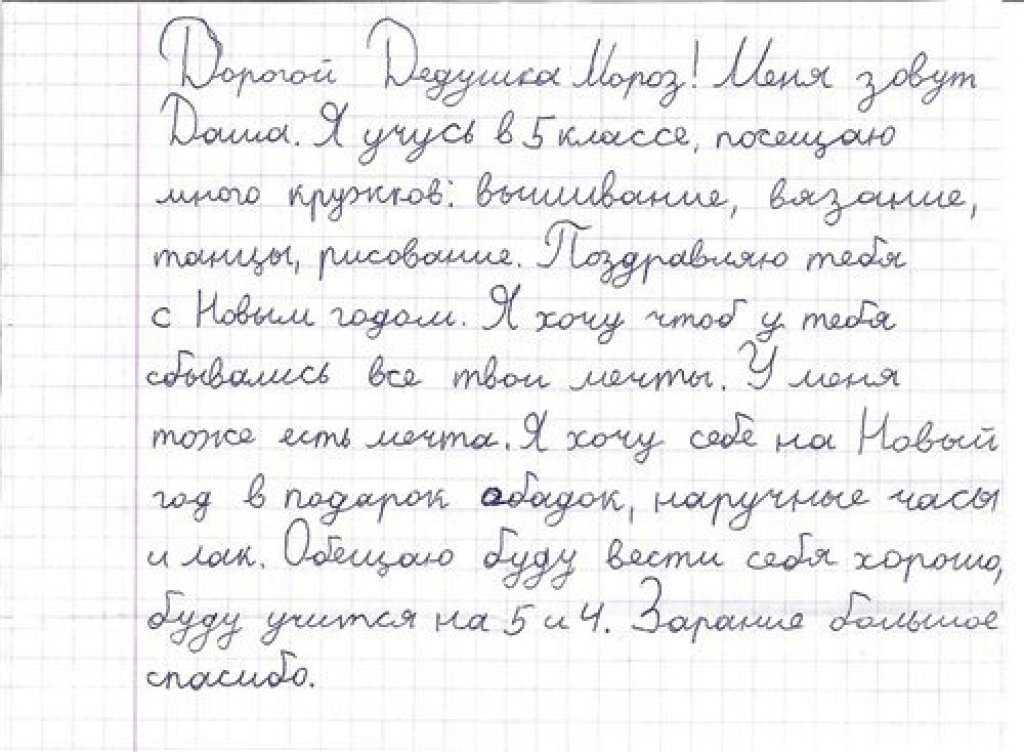 Дорогой Дедушка Мороз! Меня зовут
Даша. Я учусь в 5 классе, посещаю
много кружков: вышивание, вязание,
танцы, рисование. Поздравляю тебя
с Новым годом. Я хочу чтоб у тебя
сбывались все твои мечты. У меня
тоже есть мечта. Я хочу себе на Новый
год в подарок обадок, наручные часы
и лак. Обещаю буду вести себя хорошо,
буду учится на 5 и 4. Зарание большое
спасибо.